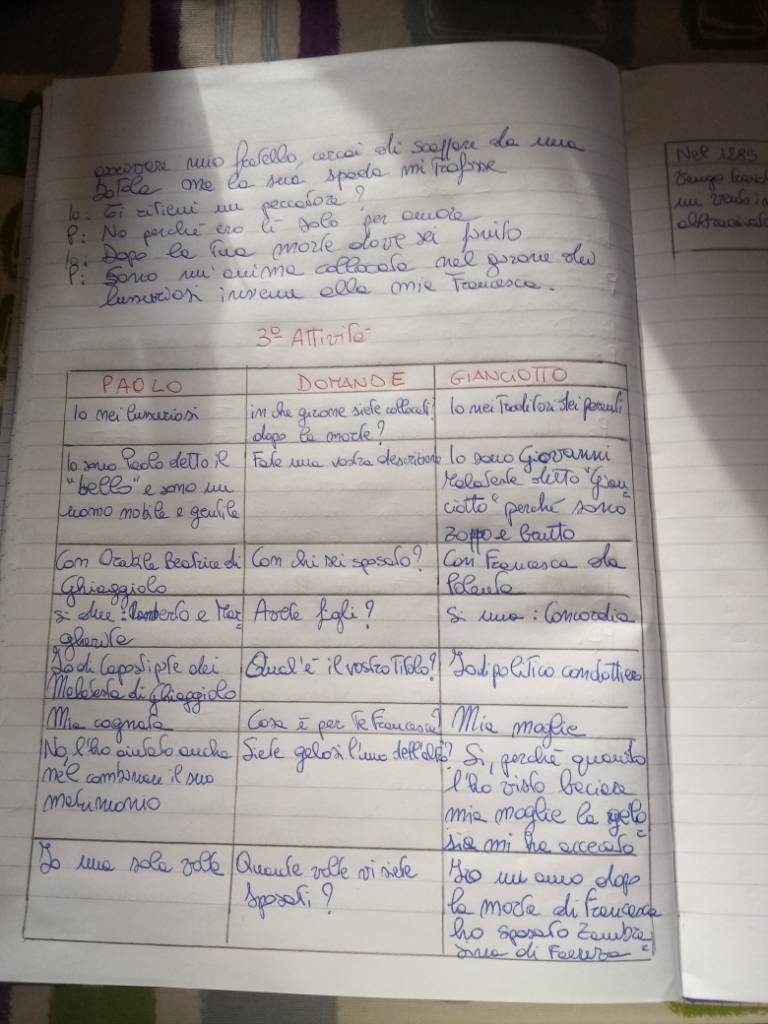 mio fratello, cercai di scappare da una
botola ma la sua spada mi trafisse
Io: Ti ritieni un peccatore?
P: No perché ero lì solo per amore
Io: Dopo la tua morte dove sei finito
P: Sono un'anima collocata nel girone dei
lussuriosi insieme alla mia Francesca.
3º Attività
PAOLO DOMANDE GIANCIOTTO
Io nei lussuriosi
in che girone siete collocati
dopo la morte?
Io nei Traditori dei parenti
Io sono Paolo detto il
"bello" e sono un
uomo nobile e gentile
Fate una vostra descrizione
Io sono Giovanni
Malatesta detto "Gian=
ciotto" perché sono
zoppo e brutto
Con Orabile Beatrice di
Ghiaggiolo
Con chi sei sposato?
Con Francesca da
Polenta
Si due: Uamberto e Mar=
gherita
Avete figli?
Si una: Concordia
Io di Capostipite dei
Malatesta di Ghiaggiolo
Qual'è il vostro titolo?
Io di politico condottiero
Mia cognata
Cosa è per te Francesca?
Mia moglie
No, l'ho aiutato anche
nel combinare il suo
matrimonio
Siete gelosi l'uno dell'altro?
Si, perché quando
l'ho visto baciare
mia moglie la gelo=
sia mi ha accecato
Io una sola volta
Quante volte vi siete
sposati?
Io un anno dopo
la morte di Francesca
ho sposato Zambra=
sina di Faenza
Nel 1285
Tengo
un